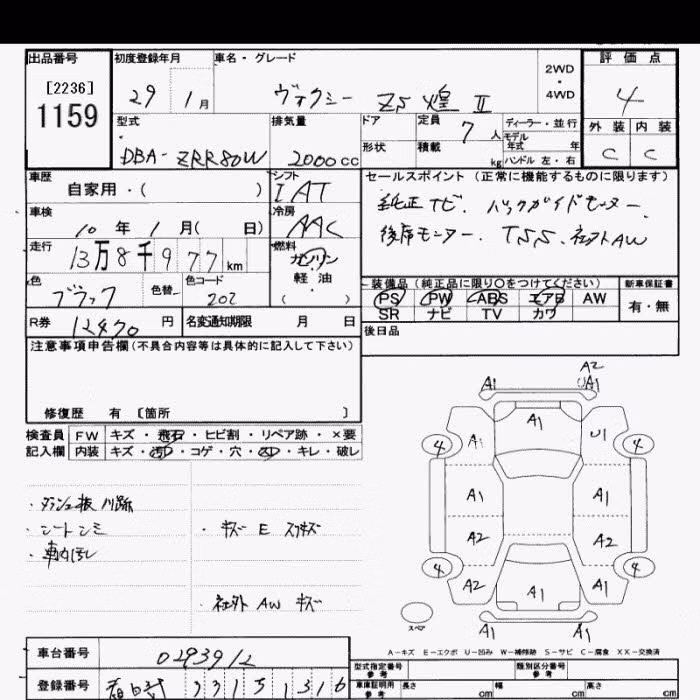 出品番号 初度登録年月 車名・グレード 評価点
[2236]
1159
29 1月
ヴォクシー ZS 煌 Ⅱ
2WD
・
4WD
4
外装 内装
C C
型式 排気量 ドア 定員 7人 ディーラー・並行
モデル年式 年
DBA-ZRR80W 2000cc 形状 積載 kg ハンドル 左・右
車歴 シフト セールスポイント (正常に機能するものに限ります)
自家用・( ) IAT
車検 冷房 純正TV. バックガイドモニター.
10年 1月( 日) AAC 後席モニター. TSS. 社外AW
走行 燃料
13万8千977km ガソリン
軽油
( )
色 色替 色コード
ブラック 202
装備品 (純正品に限り〇をつけてください) 新車保証書
PS PW ABS エアB AW 有・無
SR ナビ TV カワ
R券 12470円 名変通知期限 月 日 後日品
注意事項申告欄(不具合内容等は具体的に記入して下さい)
修復歴 有 [箇所 ]
検査員 FW キズ・飛石・ヒビ割・リペア跡・×要
記入欄 内装 キズ・汚・コゲ・穴・凹・キレ・破レ
・シートシミ
・キズ E スリキズ
・社外 AW キズ
A2
A1 UA1
A1
4 A1 U1 4
A1 A1
A2 A2
4 A2 A1 A1 4
A1 A1
スペア
A-キズ E-エクボ U-凹み W-補修跡 S-サビ C-腐食 XX-交換済
車台番号 0293912
型式指定番号 参考 類別区分番号 参考
登録番号 春日部 331 5 1316
車庫証明用 参考 長さ cm 幅 cm 高さ cm